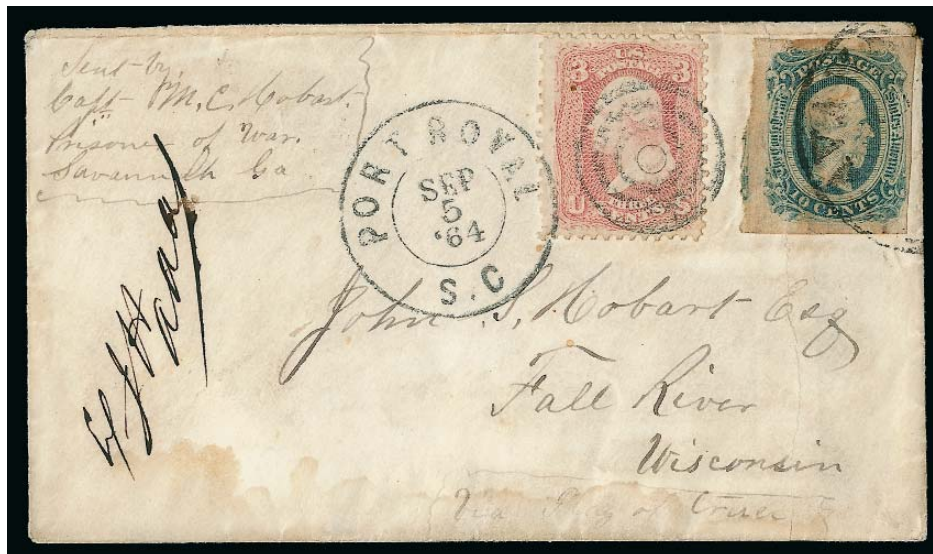 Sent by
Capt M. C. Hobart.
Prisoner of War.
Savannah Ga
PORT ROYAL
SEP
5
'64
S.C
U.S.
POSTAGE
3 3
CENTS
POSTAGE
CENTS
John S. Hobart Esq
Fall River
Wisconsin
Via Flag of Truce